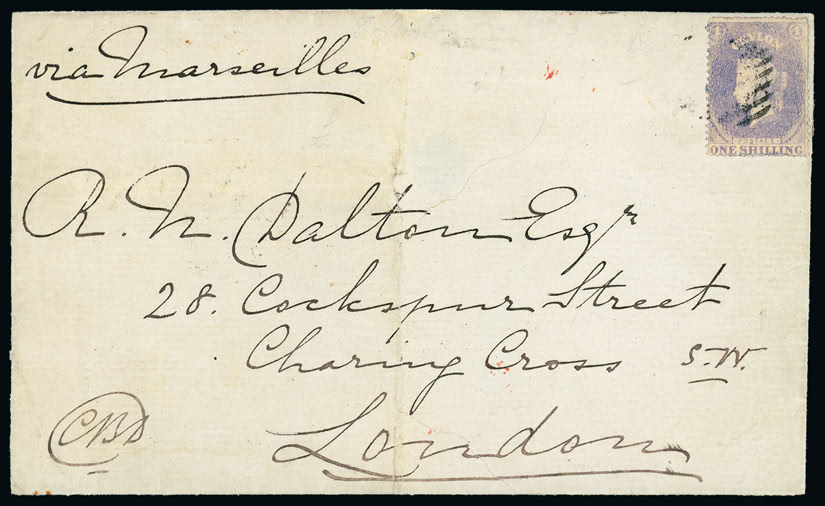 via Marseilles
CEYLON
POSTAGE
ONE SHILLING
R. N. Dalton Esqr
28. Cockspur Street
Charing Cross S.W.
CBD
London